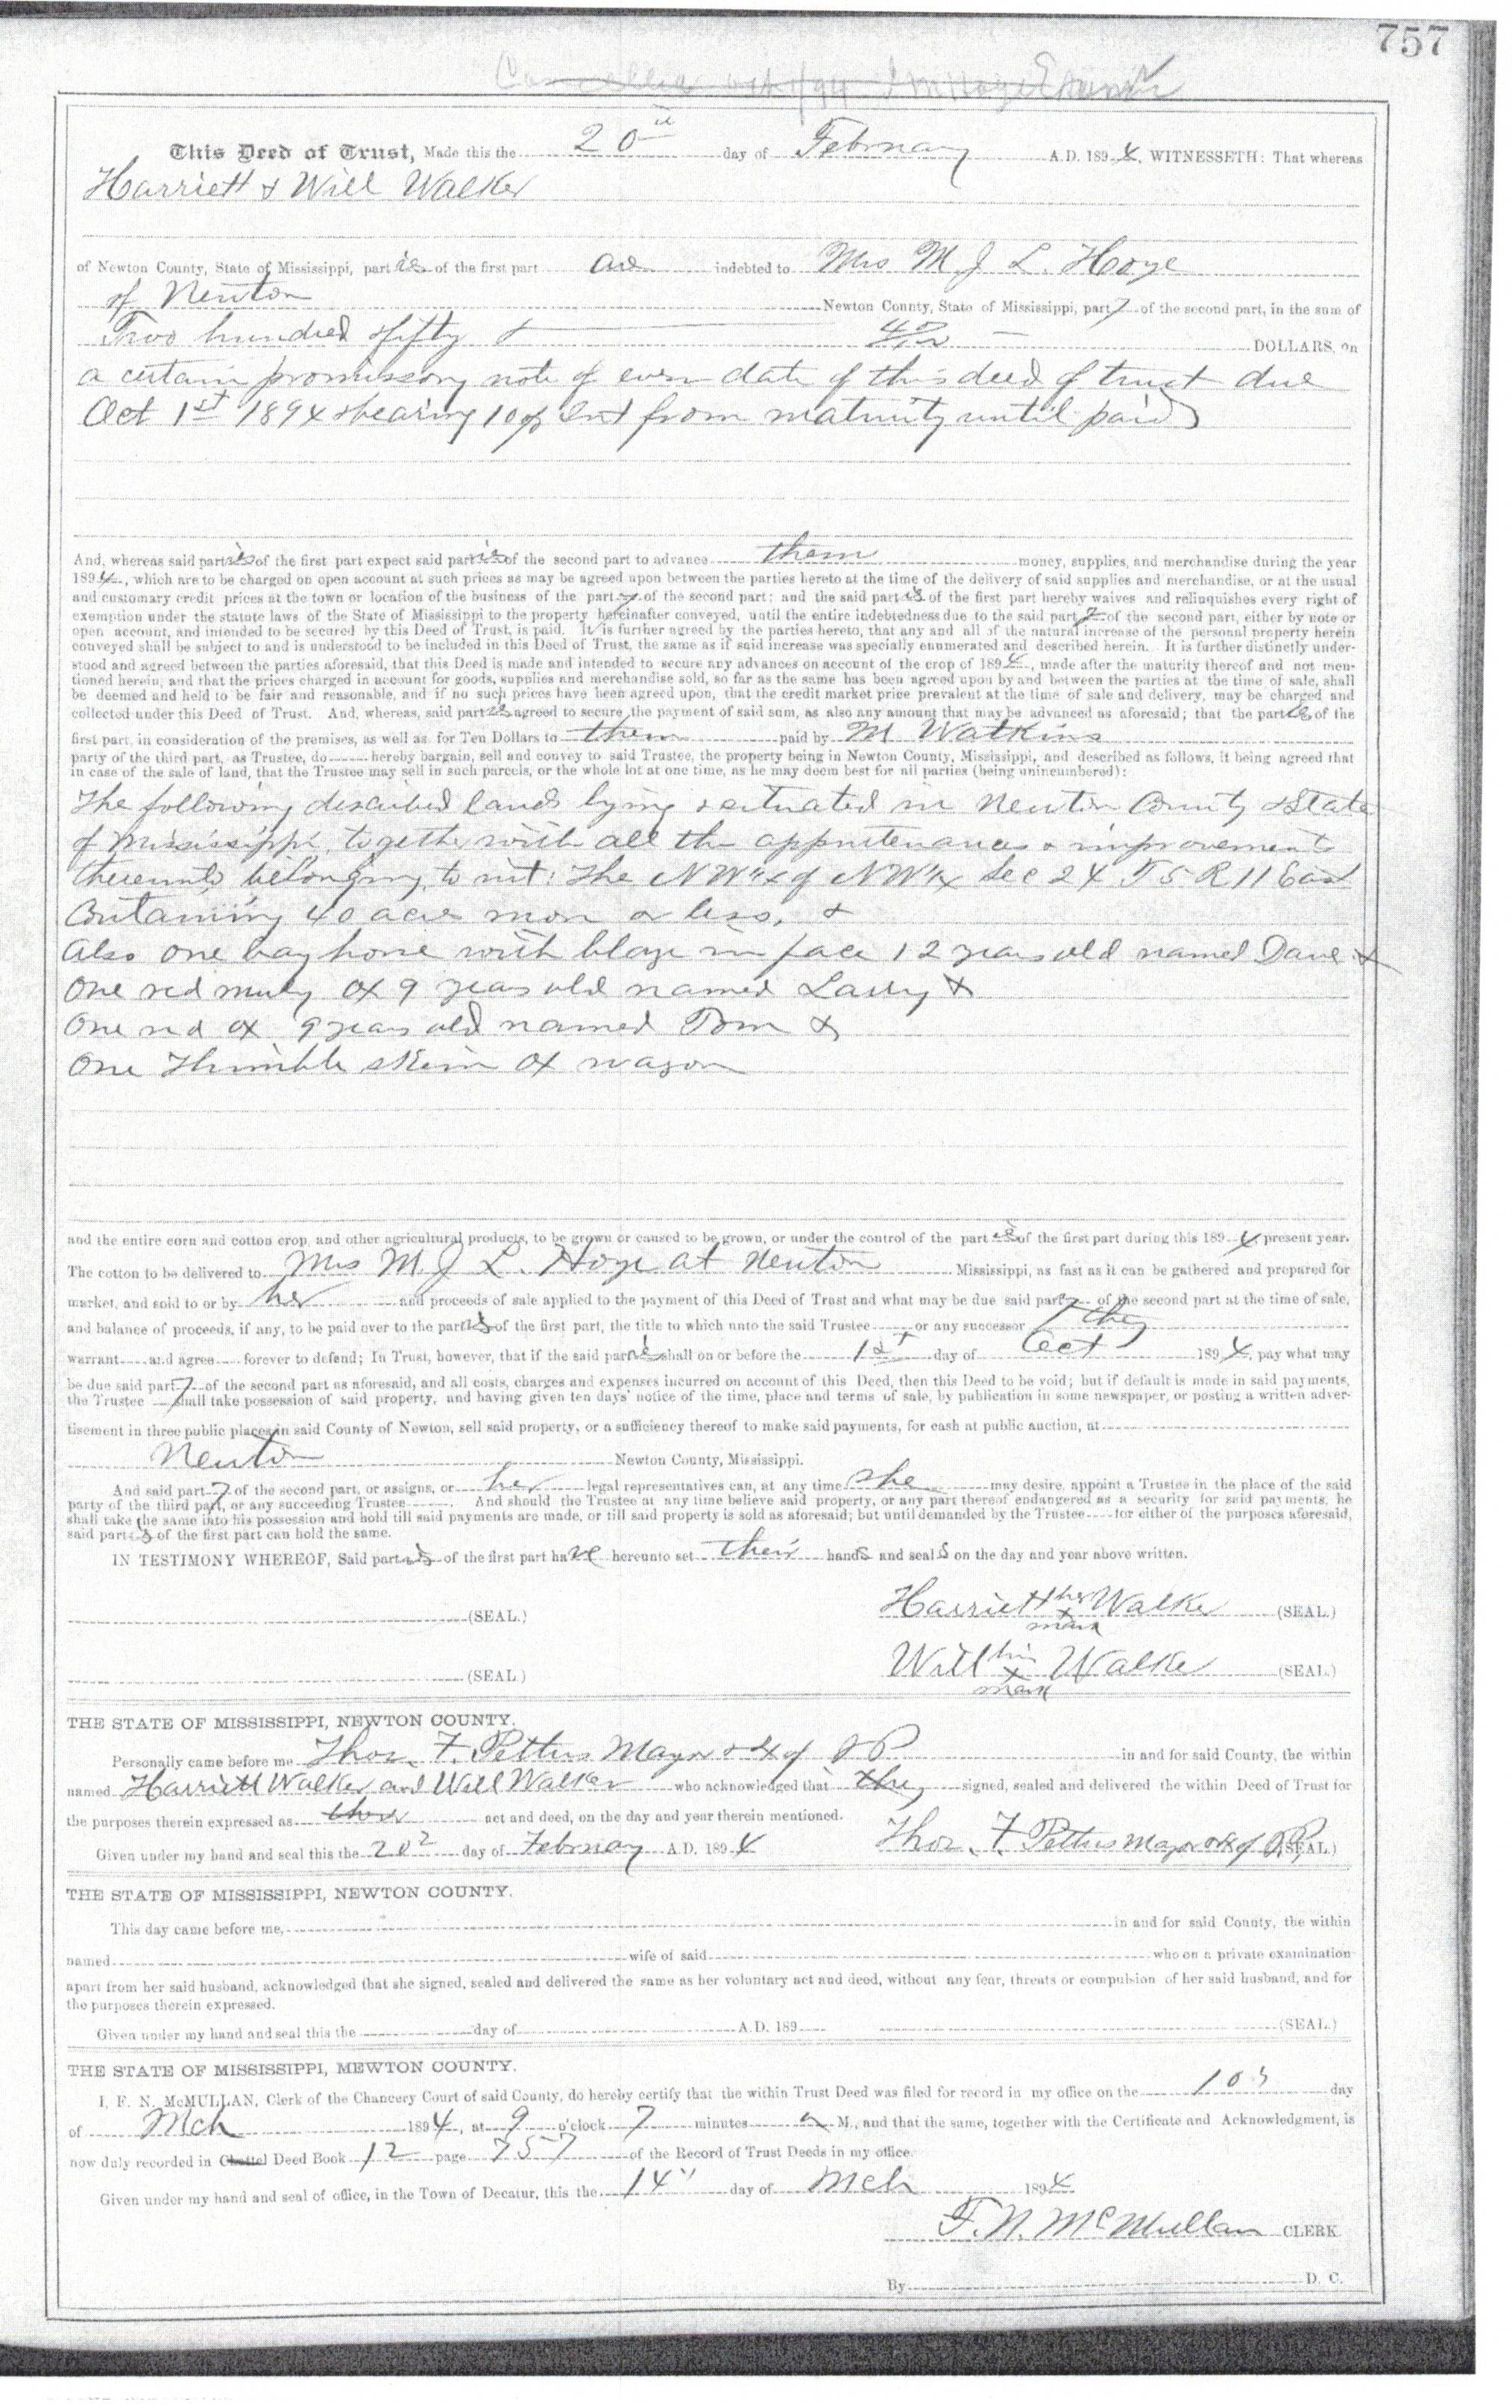 757
This Deed of Trust, Made this the 20th day of February A.D. 1894, WITNESSETH: That whereas
Harriett & Will Walker
of Newton County, State of Mississippi, parties of the first part are indebted to Mrs M J L. Hoye
of Newton Newton County, State of Mississippi, party of the second part, in the sum of
Two hundred & fifty & DOLLARS, on
a certain promissory note of even date of this deed of trust due
Oct 1st 1894 & bearing 10% Int from maturity until paid
And, whereas said parties of the first part expect said parties of the second part to advance them money, supplies, and merchandise during the year
1894, which are to be charged on open account at such prices as may be agreed upon between the parties hereto at the time of the delivery of said supplies and merchandise, or at the usual
and customary credit prices at the town or location of the business of the party of the second part; and the said parties of the first part hereby waives and relinquishes every right of
exemption under the statute laws of the State of Mississippi to the property hereinafter conveyed, until the entire indebtedness due to the said party of the second part, either by note or
open account, and intended to be secured by this Deed of Trust, is paid. It is further agreed by the parties hereto, that any and all of the natural increase of the personal property herein
conveyed shall be subject to and is understood to be included in this Deed of Trust, the same as if said increase was specially enumerated and described herein. It is further distinctly under-
stood and agreed between the parties aforesaid, that this Deed is made and intended to secure any advances on account of the crop of 1894, made after the maturity thereof and not men-
tioned herein, and that the prices charged in account for goods, supplies and merchandise sold, so far as the same has been agreed upon by and between the parties at the time of sale, shall
be deemed and held to be fair and reasonable, and if no such prices have been agreed upon, that the credit market price prevalent at the time of sale and delivery, may be charged and
collected under this Deed of Trust. And, whereas, said parties agreed to secure the payment of said sum, as also any amount that may be advanced as aforesaid; that the parties of the
first part, in consideration of the premises, as well as for Ten Dollars to them paid by M Watkins
party of the third part, as Trustee, do hereby bargain, sell and convey to said Trustee, the property being in Newton County, Mississippi, and described as follows, it being agreed that
in case of the sale of land, that the Trustee may sell in such parcels, or the whole lot at one time, as he may deem best for all parties (being unincumbered):
The following described lands lying & situated in Newton County & State
of Mississippi, together with all the appurtenances & improvements
thereunto belonging, to wit: The NW¼ of NW¼ Sec 24 T 5 R 11 East
Containing 40 acres more or less, &
Also one bay horse with blaze in face 12 years old named Dave &
One red muly ox 9 years old named Larry &
One red ox 9 years old named Tom &
One Thimble skein ox wagon
and the entire corn and cotton crop, and other agricultural products, to be grown or caused to be grown, or under the control of the parties of the first part during this 1894 present year.
The cotton to be delivered to Mrs M. J L. Hoye at Newton Mississippi, as fast as it can be gathered and prepared for
market, and sold to or by her and proceeds of sale applied to the payment of this Deed of Trust and what may be due said party of the second part at the time of sale,
and balance of proceeds, if any, to be paid over to the parties of the first part, the title to which unto the said Trustee or any successor they
warrant and agree forever to defend; In Trust, however, that if the said parties shall on or before the 1st day of Oct 1894, pay what may
be due said party of the second part as aforesaid, and all costs, charges and expenses incurred on account of this Deed, then this Deed to be void; but if default is made in said payments,
the Trustee shall take possession of said property, and having given ten days' notice of the time, place and terms of sale, by publication in some newspaper, or posting a written adver-
tisement in three public places in said County of Newton, sell said property, or a sufficiency thereof to make said payments, for cash at public auction, at
Newton Newton County, Mississippi.
And said party of the second part, or assigns, or her legal representatives can, at any time she may desire, appoint a Trustee in the place of the said
party of the third part, or any succeeding Trustee. And should the Trustee at any time believe said property, or any part thereof endangered as a security for said payments, he
shall take the same into his possession and hold till said payments are made, or till said property is sold as aforesaid; but until demanded by the Trustee for either of the purposes aforesaid,
said parties of the first part can hold the same.
IN TESTIMONY WHEREOF, Said parties of the first part have hereunto set their hands and seals on the day and year above written.
(SEAL.) Harriett her x mark Walker (SEAL.)
(SEAL.) Will his x mark Walker (SEAL.)
THE STATE OF MISSISSIPPI, NEWTON COUNTY.
Personally came before me Thos. F. Pettus Mayor & Ex of JP in and for said County, the within
named Harriett Walker and Will Walker who acknowledged that they signed, sealed and delivered the within Deed of Trust for
the purposes therein expressed as their act and deed, on the day and year therein mentioned.
Given under my hand and seal this the 20 day of February A.D. 1894 Thos. F. Pettus Mayor & Ex of JP (SEAL.)
THE STATE OF MISSISSIPPI, NEWTON COUNTY.
This day came before me, in and for said County, the within
named wife of said who on a private examination
apart from her said husband, acknowledged that she signed, sealed and delivered the same as her voluntary act and deed, without any fear, threats or compulsion of her said husband, and for
the purposes therein expressed.
Given under my hand and seal this the day of A.D. 189 (SEAL.)
THE STATE OF MISSISSIPPI, MEWTON COUNTY.
I, F. N. McMULLAN, Clerk of the Chancery Court of said County, do hereby certify that the within Trust Deed was filed for record in my office on the 10 day
of Mch 1894, at 9 o'clock 7 minutes a M., and that the same, together with the Certificate and Acknowledgment, is
now duly recorded in Chattel Deed Book 12 page 757 of the Record of Trust Deeds in my office.
Given under my hand and seal of office, in the Town of Decatur, this the 14" day of Mch 1894
F. N. McMullan CLERK
By D. C.